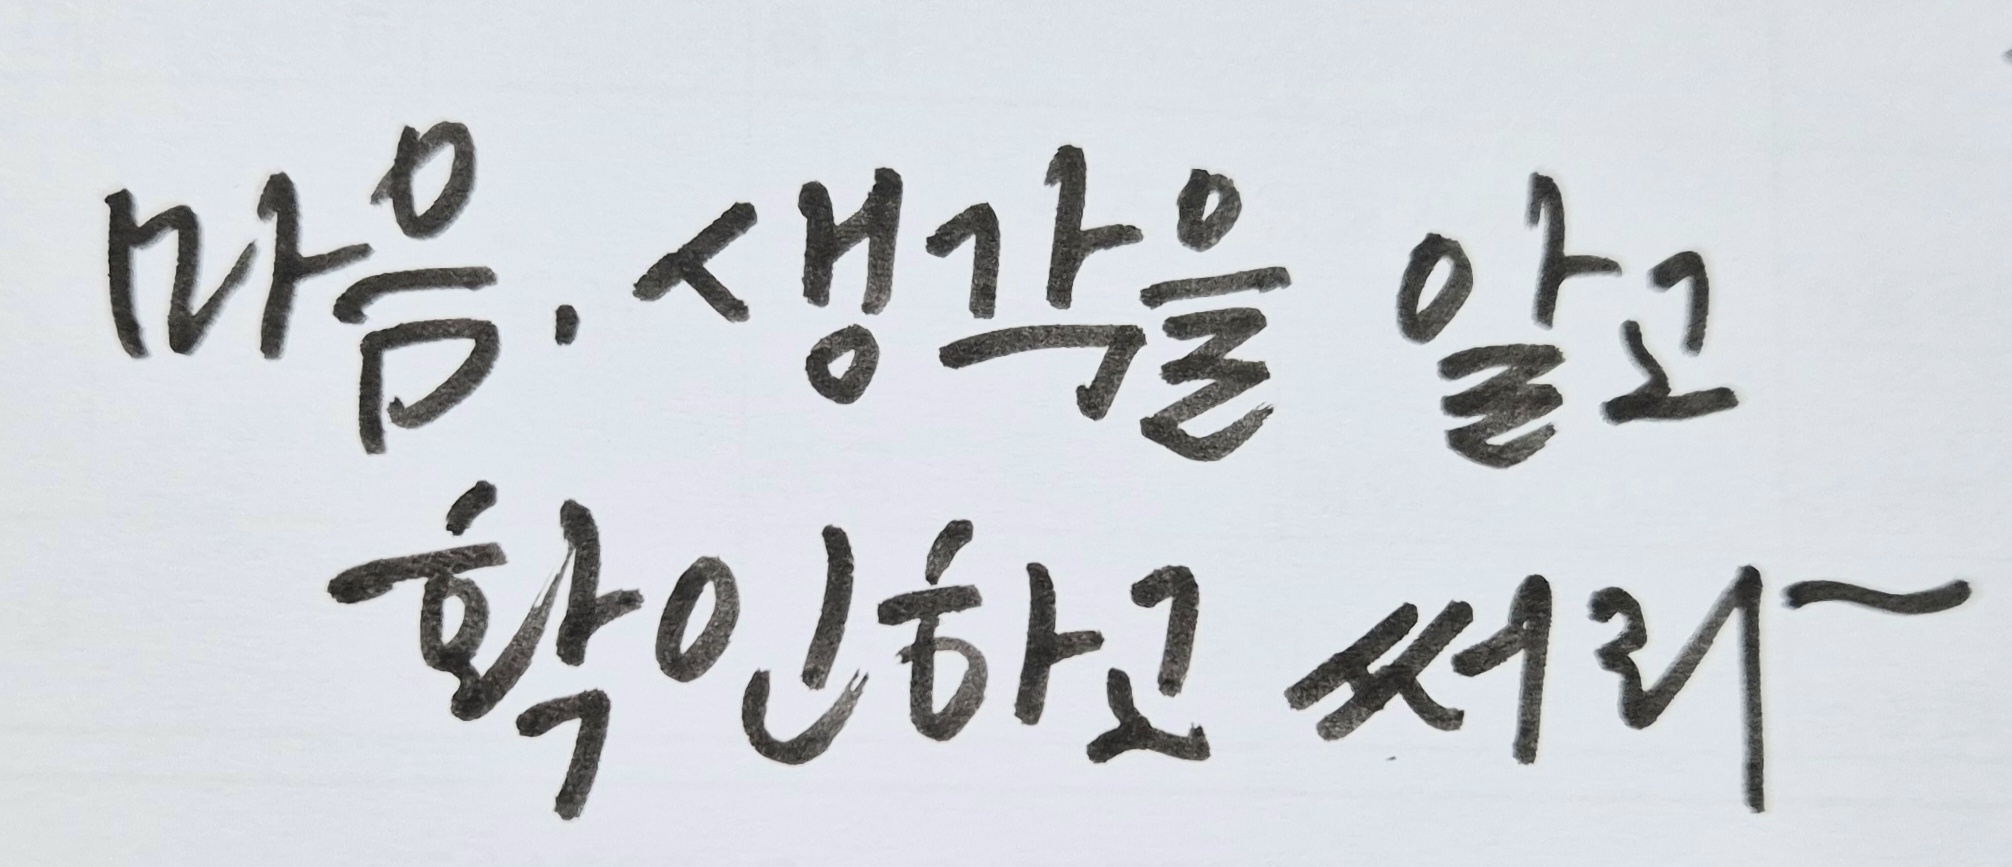 마음.생각을 알고
확인하고 써리~